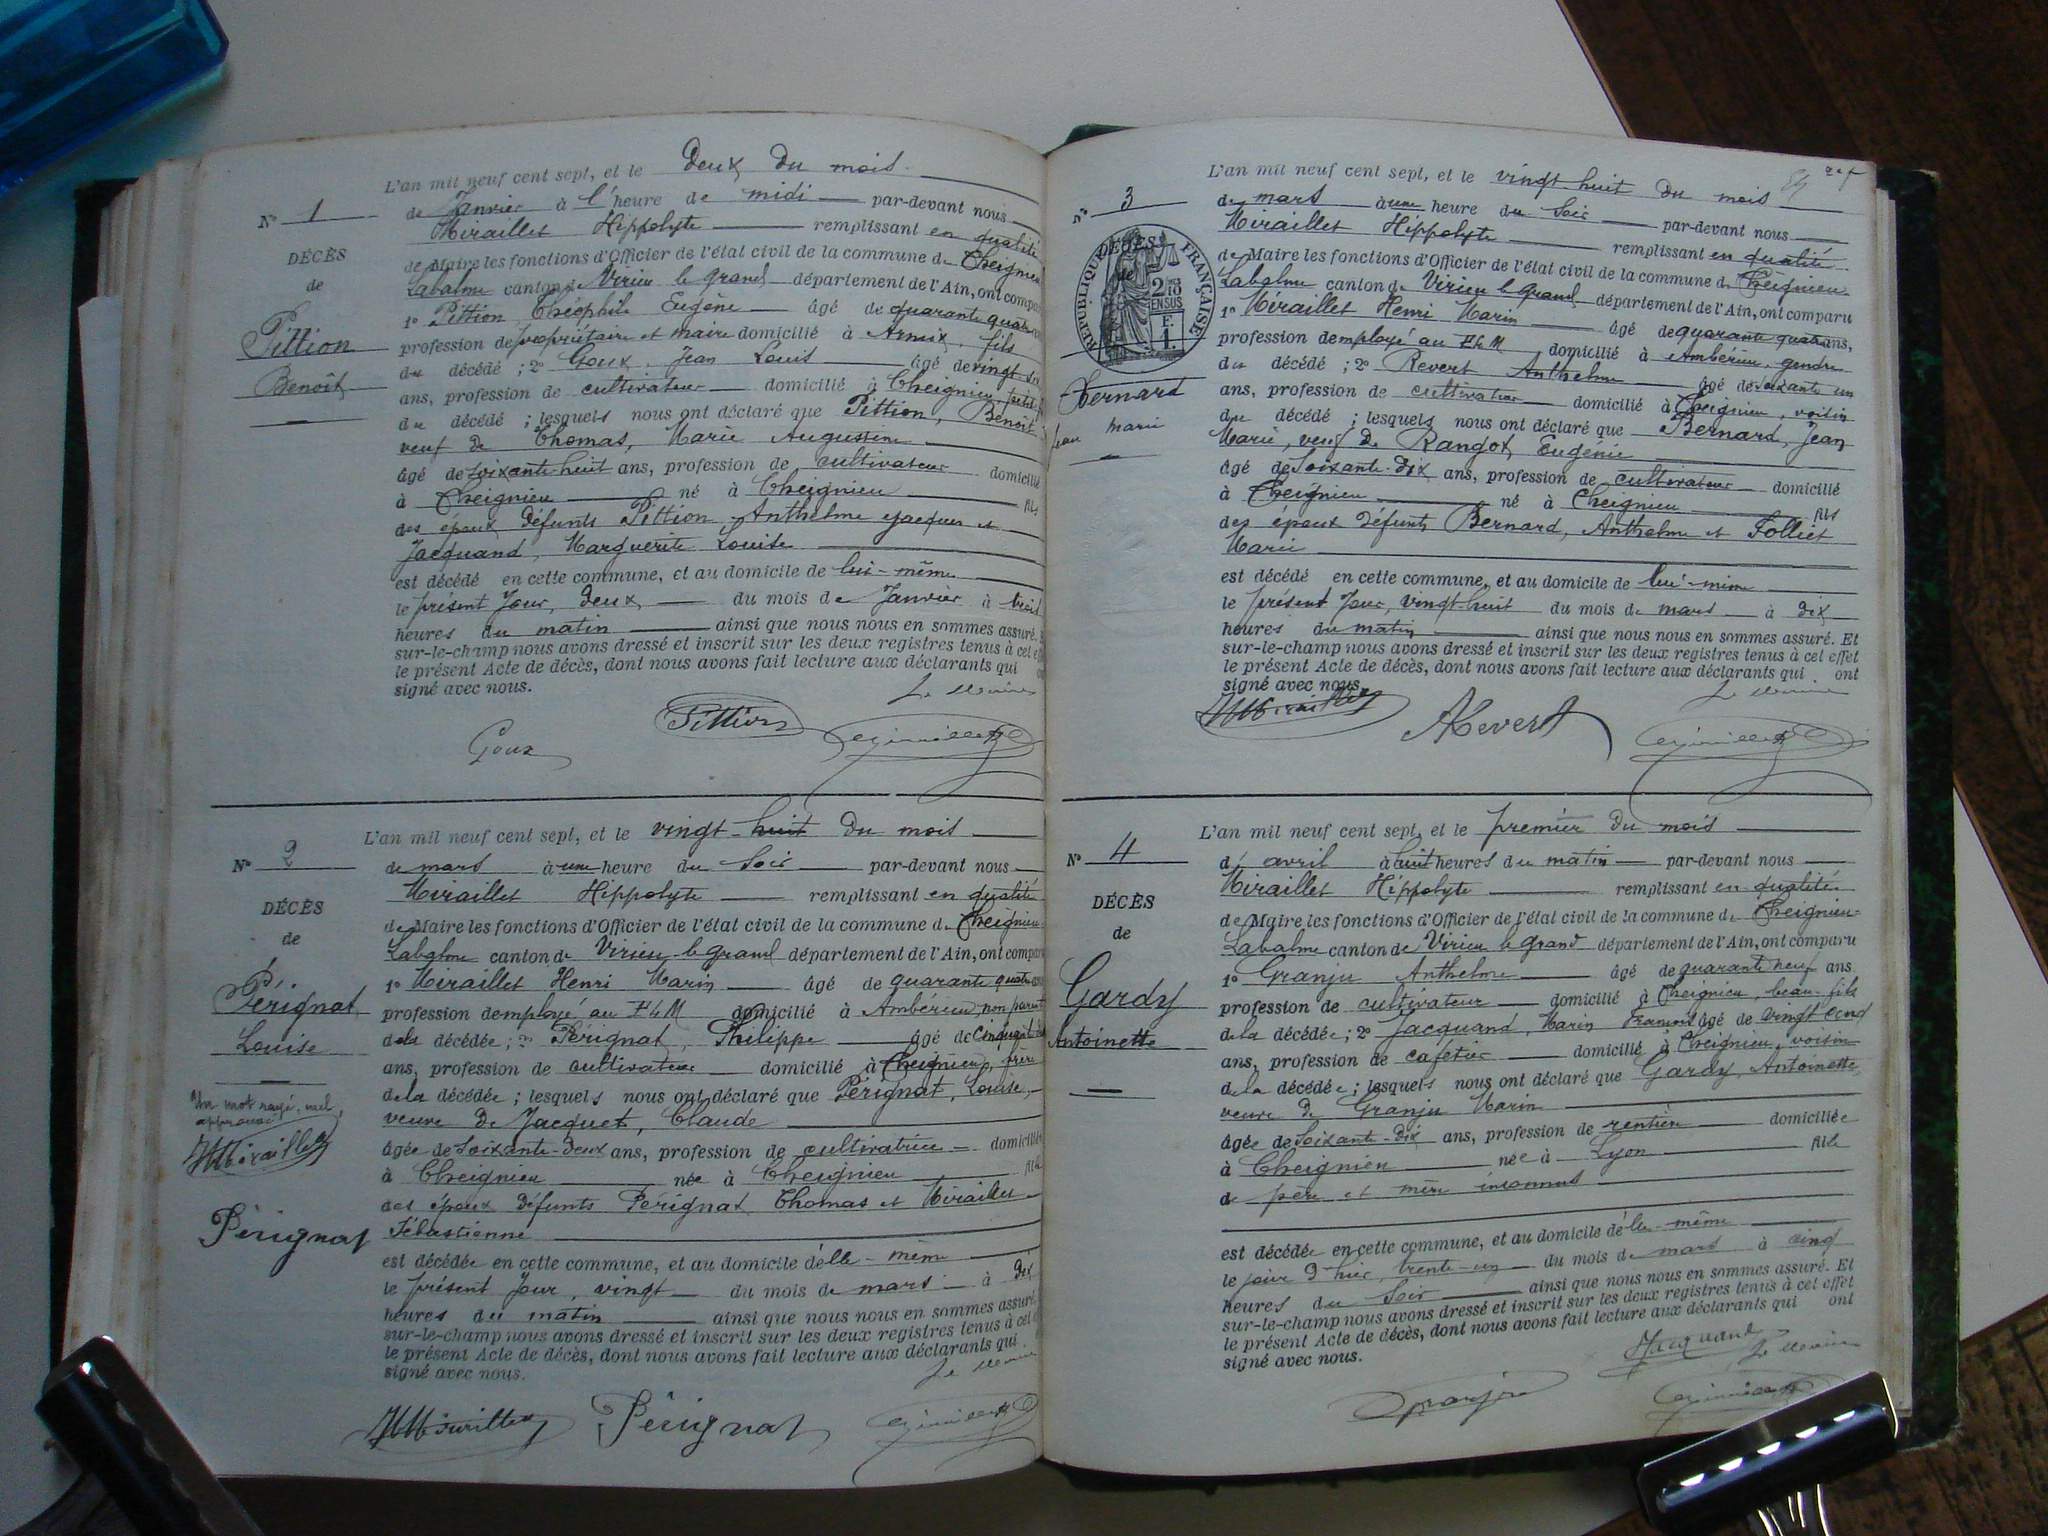 L'an mil neuf cent sept, et le Deux du mois
N° 1
de Janvier à l'heure de midi par-devant nous
Miraillet Hippolyte remplissant en qualité
DÉCÈS
de Maire les fonctions d'Officier de l'état civil de la commune de Cheignieu
de
Labalme canton de Virieu le grand département de l'Ain, ont compar
1° Pittion, Théophile Eugène âgé de quarante quatre
Pittion
profession de propriétaire et maire domicilié à Armix, fils
Benoît
du décédé ; 2° Goux, Jean Louis âgé de vingt six
ans, profession de cultivateur domicilié à Cheignieu, petit-f
du décédé ; lesquels nous ont déclaré que Pittion, Benoît
veuf de Thomas, Marie Augustine
âgé de soixante-huit ans, profession de cultivateur domicilié
à Cheignieu né à Cheignieu fils
des époux défunts Pittion, Anthelme Jacques et
Jacquand, Marguerite Louise
est décédé en cette commune, et au domicile de lui-même
le présent Jour, deux du mois de Janvier à trois
heures du matin ainsi que nous nous en sommes assuré. E
sur-le-champ nous avons dressé et inscrit sur les deux registres tenus à cet e
le présent Acte de décès, dont nous avons fait lecture aux déclarants qui o
signé avec nous.
Le Maire
Pittion
Goux
L'an mil neuf cent sept, et le vingt huit du mois
N° 2
de mars à une heure du soir par-devant nous
Miraillet Hippolyte remplissant en qualité
DÉCÈS
de Maire les fonctions d'Officier de l'état civil de la commune de Cheignieu
de
Labalme canton de Virieu le grand département de l'Ain, ont compar
1° Miraillet Henri Marin âgé de quarante quatre ans
Pérignat
profession de employé au P L M domicilié à Ambérieu, non parent
Louise
de la décédée ; 2° Pérignat, Philippe âgé de cinquante
ans, profession de cultivateur domicilié à Cheignieu, frère
de la décédée ; lesquels nous ont déclaré que Pérignat, Louise,
Un mot rayé, nul,
approuvé
veuve de Jacquet, Claude
HMiraillet
âgée de soixante-deux ans, profession de cultivatrice domiciliée
à Cheignieu née à Cheignieu fille
des époux défunts Pérignat Thomas et Miraillet
Pérignat
Sébastienne
est décédée en cette commune, et au domicile d'elle-même
le présent Jour, vingt du mois de mars à dix
heures du matin ainsi que nous nous en sommes assuré.
sur-le-champ nous avons dressé et inscrit sur les deux registres tenus à cet e
le présent Acte de décès, dont nous avons fait lecture aux déclarants qui
signé avec nous.
Le Maire
HMiraillet Pérignat
L'an mil neuf cent sept, et le vingt-huit du mois
N° 3
de mars à une heure du soir par-devant nous
Miraillet Hippolyte remplissant en qualité
DÉCÈS
de
RÉPUBLIQUE FRANÇAISE
2/10 EN SUS
F. 1.
de Maire les fonctions d'Officier de l'état civil de la commune de Cheignieu
Labalme canton de Virieu le grand département de l'Ain, ont comparu
1° Miraillet Henri Marin âgé de quarante quatre ans,
profession de employé au P L M domicilié à Ambérieu, gendre
Bernard
Jean Marie
du décédé ; 2° Revert Anthelme âgé de soixante un
ans, profession de cultivateur domicilié à Cheignieu, voisin
du décédé ; lesquels nous ont déclaré que Bernard, Jean
Marie, veuf de Rangot, Eugénie
âgé de soixante-dix ans, profession de cultivateur domicilié
à Cheignieu né à Cheignieu fils
des époux défunts Bernard, Anthelme et Folliet
Marie
est décédé en cette commune, et au domicile de lui-même
le présent Jour, vingt-huit du mois de mars à dix
heures du matin ainsi que nous nous en sommes assuré. Et
sur-le-champ nous avons dressé et inscrit sur les deux registres tenus à cet effet
le présent Acte de décès, dont nous avons fait lecture aux déclarants qui ont
signé avec nous.
Le Maire
HMiraillet ARevert
L'an mil neuf cent sept, et le premier du mois
N° 4
d'avril à huit heures du matin par-devant nous
Miraillet Hippolyte remplissant en qualité
DÉCÈS
de Maire les fonctions d'Officier de l'état civil de la commune de Cheignieu
de
Labalme canton de Virieu le grand département de l'Ain, ont comparu
1° Granju Anthelme âgé de quarante neuf ans
Gardy
profession de cultivateur domicilié à Cheignieu, beau-fils
Antoinette
de la décédée ; 2° Jacquand, Marin François âgé de vingt cinq
ans, profession de cafetier domicilié à Cheignieu, voisin
de la décédée ; lesquels nous ont déclaré que Gardy, Antoinette,
veuve de Granju Marin
âgée de soixante-dix ans, profession de rentière domiciliée
à Cheignieu née à Lyon fille
de père et mère inconnus
est décédée en cette commune, et au domicile d'elle-même
le jour d'hier, trente-un du mois de mars à cinq
heures du soir ainsi que nous nous en sommes assuré. Et
sur-le-champ nous avons dressé et inscrit sur les deux registres tenus à cet effet
le présent Acte de décès, dont nous avons fait lecture aux déclarants qui ont
signé avec nous.
Jacquand Le Maire
Granju